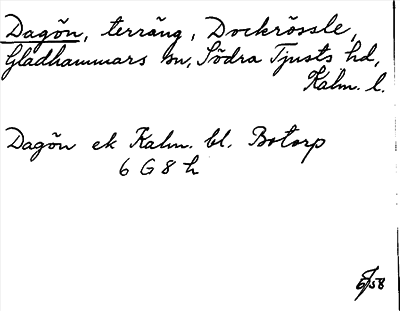 Dagön, terräng, Dockrössle,
Gladhammars sn, Södra Tjusts hd,
Kalm. l.
Dagön ek Kalm. bl. Botorp
6 G 8 h
6/58